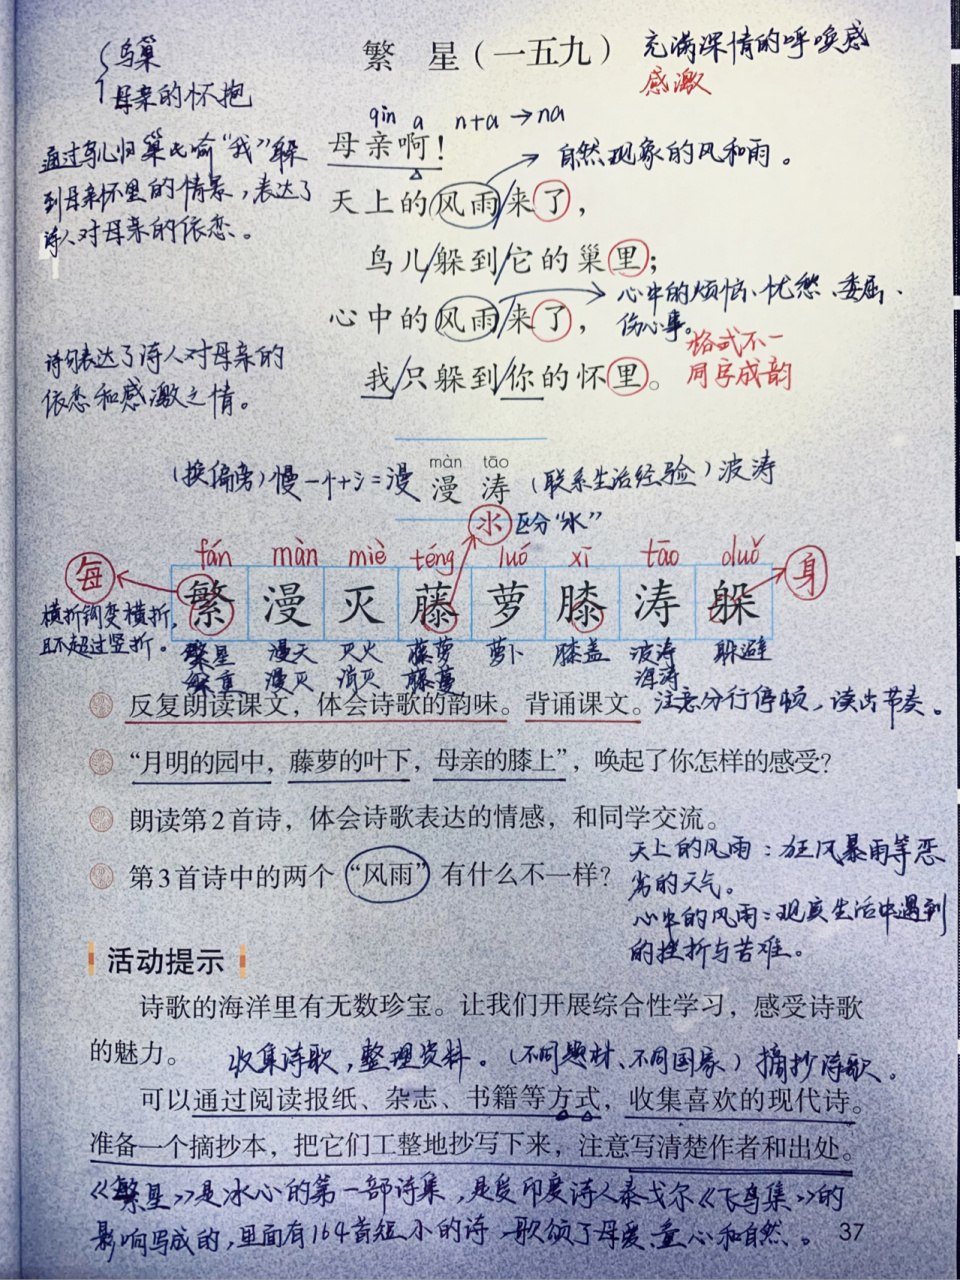 鸟巢
母亲的怀抱
繁 星（一五九）
充满深情的呼唤感
感激
qīn a n+a→na
通过鸟儿归巢比喻“我”躲
到母亲怀里的情景，表达了
诗人对母亲的依恋。
母亲啊！
自然现象的风和雨。
天上的风雨来了，
鸟儿躲到它的巢里；
心中的烦恼、忧愁、委屈、
伤心事。
心中的风雨来了，
格式不一
同字成韵
诗句表达了诗人对母亲的
依恋和感激之情。
我只躲到你的怀里。
màn tāo
（换偏旁）慢－忄+氵=漫
漫 涛
（联系生活经验）波涛
氺 区分“水”
fán màn miè téng luó xī tāo duǒ
每
繁 漫 灭 藤 萝 膝 涛 躲
身
横折钩变横折，
且不超过竖折。
繁星 漫天 灭火 藤萝 萝卜 膝盖 波涛 躲避
繁重 漫灭 消灭 藤蔓 海涛
反复朗读课文，体会诗歌的韵味。背诵课文。
注意分行停顿，读出节奏。
“月明的园中，藤萝的叶下，母亲的膝上”，唤起了你怎样的感受？
朗读第2首诗，体会诗歌表达的情感，和同学交流。
第3首诗中的两个“风雨”有什么不一样？
天上的风雨：狂风暴雨等恶
劣的天气。
心中的风雨：现实生活中遇到
的挫折与苦难。
活动提示
诗歌的海洋里有无数珍宝。让我们开展综合性学习，感受诗歌
的魅力。
收集诗歌，整理资料。（不同题材、不同国家）摘抄诗歌。
可以通过阅读报纸、杂志、书籍等方式，收集喜欢的现代诗。
准备一个摘抄本，把它们工整地抄写下来，注意写清楚作者和出处。
《繁星》是冰心的第一部诗集，是受印度诗人泰戈尔《飞鸟集》的
影响写成的，里面有164首短小的诗，歌颂了母爱、童心和自然。
37